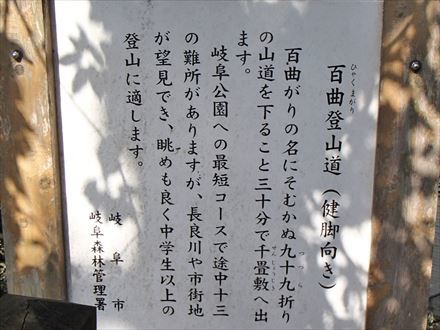 百曲登山道（健脚向き）
ひゃくまがり
百曲がりの名にそむかぬ九十九折り
つづら
の山道を下ること三十分で千畳敷へ出
せんじょうじき
ます。
岐阜公園への最短コースで途中十三
の難所がありますが、長良川や市街地
が望見でき、眺めも良く中学生以上の
登山に適します。
岐阜市
岐阜森林管理署